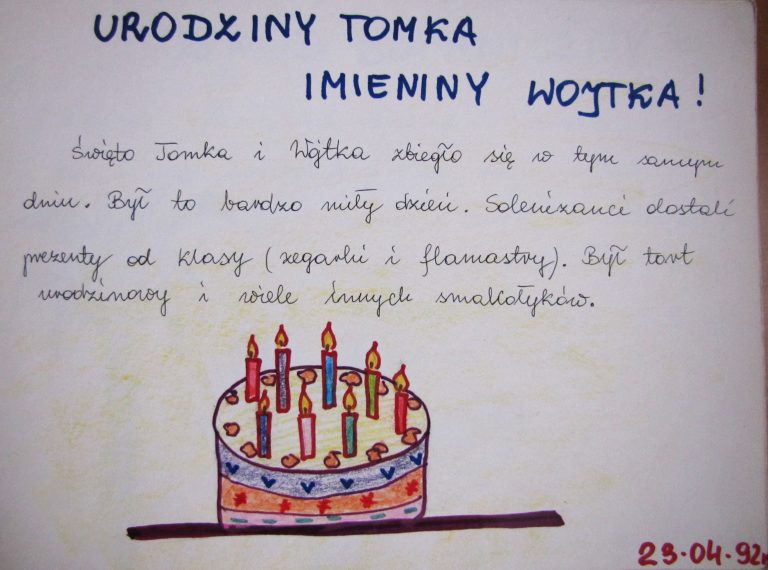 URODZINY TOMKA
IMIENINY WOJTKA!
Święto Tomka i Wojtka zbiegło się w tym samym
dniu. Był to bardzo miły dzień. Solenizanci dostali
prezenty od klasy (zegarki i flamastry). Był tort
urodzinowy i wiele innych smakołyków.
23.04.92r